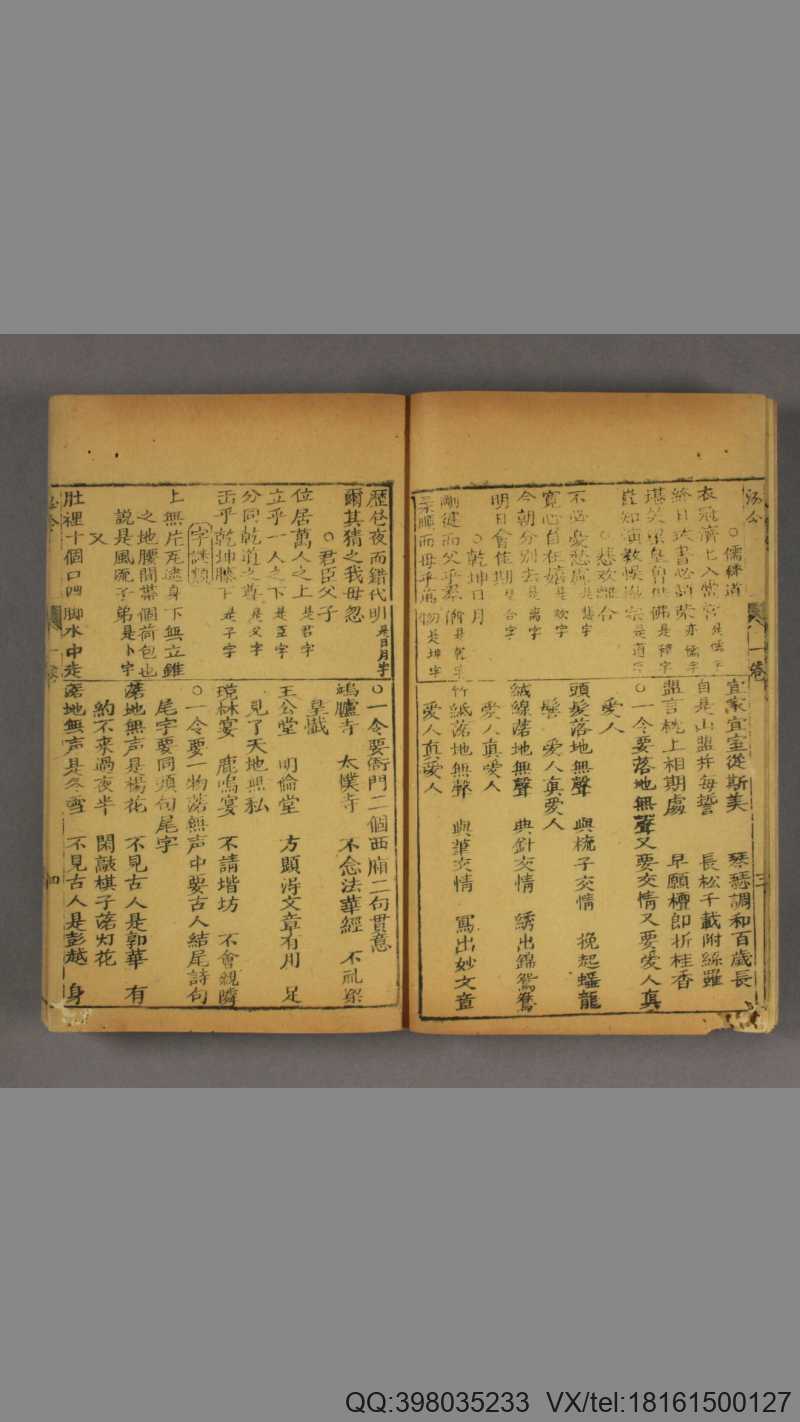 儒釋道
衣冠濟匕入黌宮是儒字
不必憂愁慮是悲字
寬心自在嬉是歡字
今朝分別去是离字
明日會佳期是合字
○乾坤日月
剛健而父乎羣
柔順而母乎萬物是坤字
宜家宜室從斯美　琴瑟調和百歲長
自是山盟并每誓　長松千載附絲蘿
盟言枕上相期處　早願檀郎折桂香
○一令要落地無聲又要交情又要愛人真
愛人
頭髮落地無聲　與梳子交情　挽起蟠龍
髻　愛人真愛人
絨線落地無聲　與針交情　綉出錦鴛鴦
愛人真愛人
竹紙落地無聲　與筆交情　寫出妙文章
愛人真愛人
一卷
三
歷昼夜而錯代明是日月字
爾其猜之我毋忽
○君臣父子
位居萬人之上是君字
立乎一人之下是臣字
分同乾道之尊是父字
缶乎乾坤膝下是子字
字謎類
上無片瓦遮身下無立錐
之地腰間帶個荷包也
說是風流子弟是卜字
又
肚裡十個口四脚水中走
○一令要衙門二個西廂二句貫意
鴻臚寺　太僕寺　不念法華經　不礼梁
皇懺
王公堂　明倫堂　方顯得文章有用　足
見了天地無私
瓊林宴　鹿鳴宴　不請堦坊　不會親隣
○一令要一物落無声中要古人結尾詩句
尾字要同頭句尾字
落地無声是楊花　不見古人是郭華　有
約不來過夜半　閑敲棋子落灯花
落地無声是冬雪　不見古人是彭越　身
四
QQ:398035233 VX/tel:18161500127